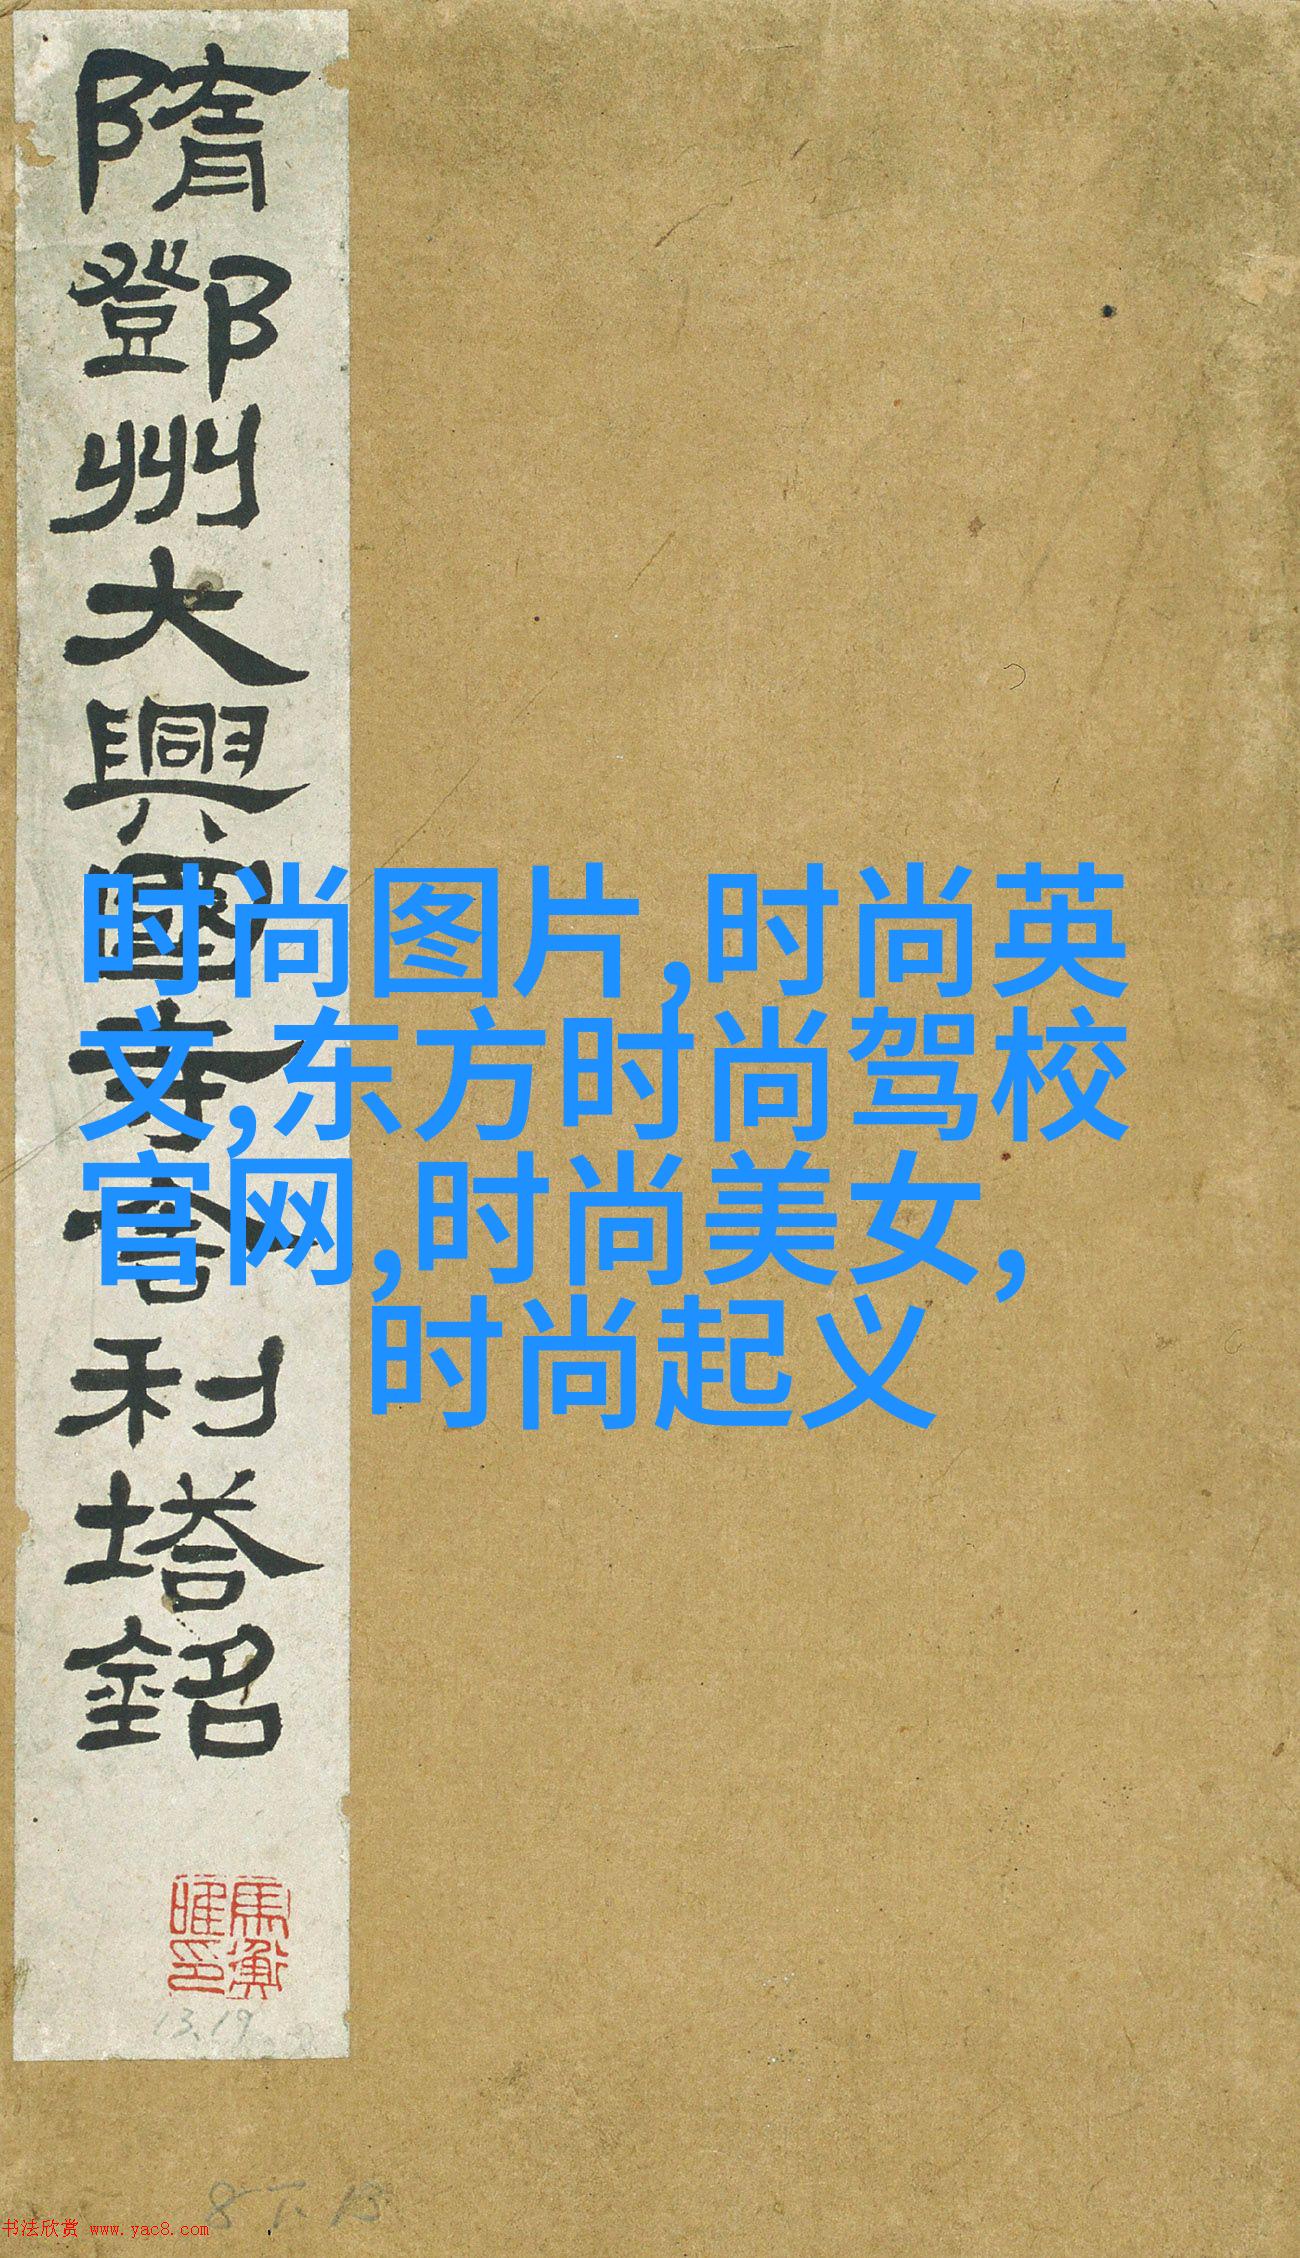 隋鄧州大興國寺舍利塔銘
时尚图片,时尚英
文,东方时尚驾校
官网,时尚美女,
时尚起义
馬衡
唯印
13.19
8下13
书法欣赏 www.yac8.com